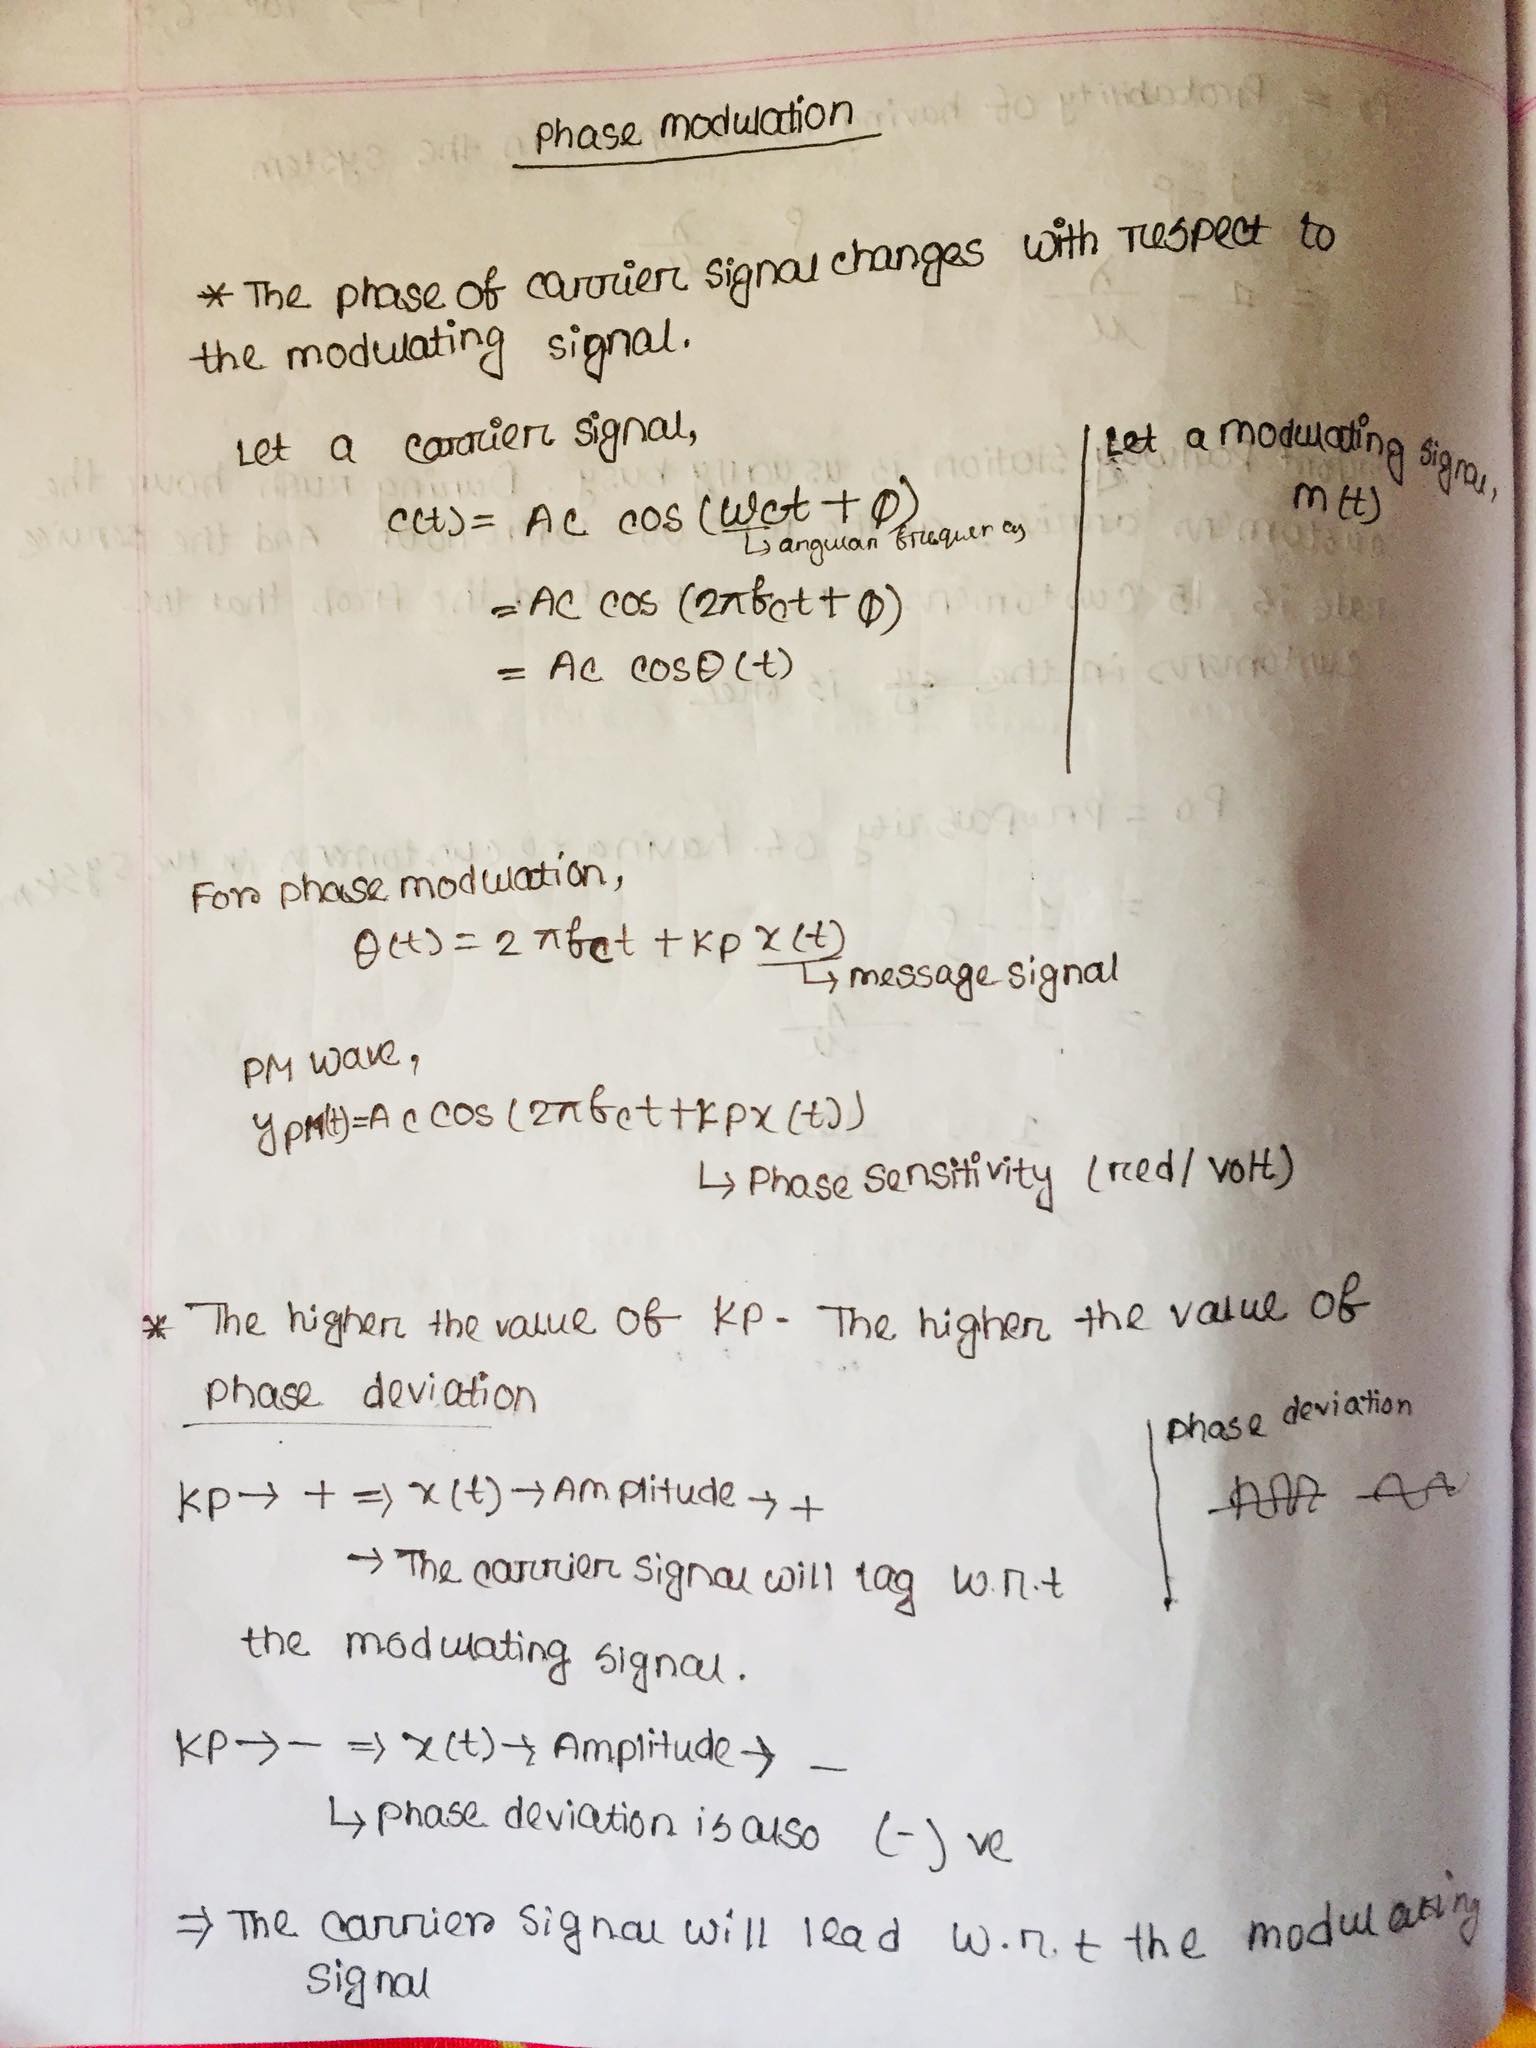 Phase modulation
* The phase of carrier signal changes with respect to
the modulating signal.
Let a carrier signal,
c(t) = Ac cos (ωct + φ)
↳ angular frequency
= Ac cos (2πfct + φ)
= Ac cosθ(t)
Let a modulating signal,
m(t)
For phase modulation,
θ(t) = 2πfct + Kp x(t)
↳ message signal
PM wave,
yPM(t) = Ac cos (2πfct + Kpx(t))
↳ Phase sensitivity (red/volt)
* The higher the value of Kp - The higher the value of
phase deviation
Kp → + ⇒ x(t) → Amplitude → +
→ The carrier signal will lag w.r.t
the modulating signal.
phase deviation
Kp → − ⇒ x(t) → Amplitude → −
↳ phase deviation is also (-) ve
⇒ The carrier signal will lead w.r.t the modulating
signal